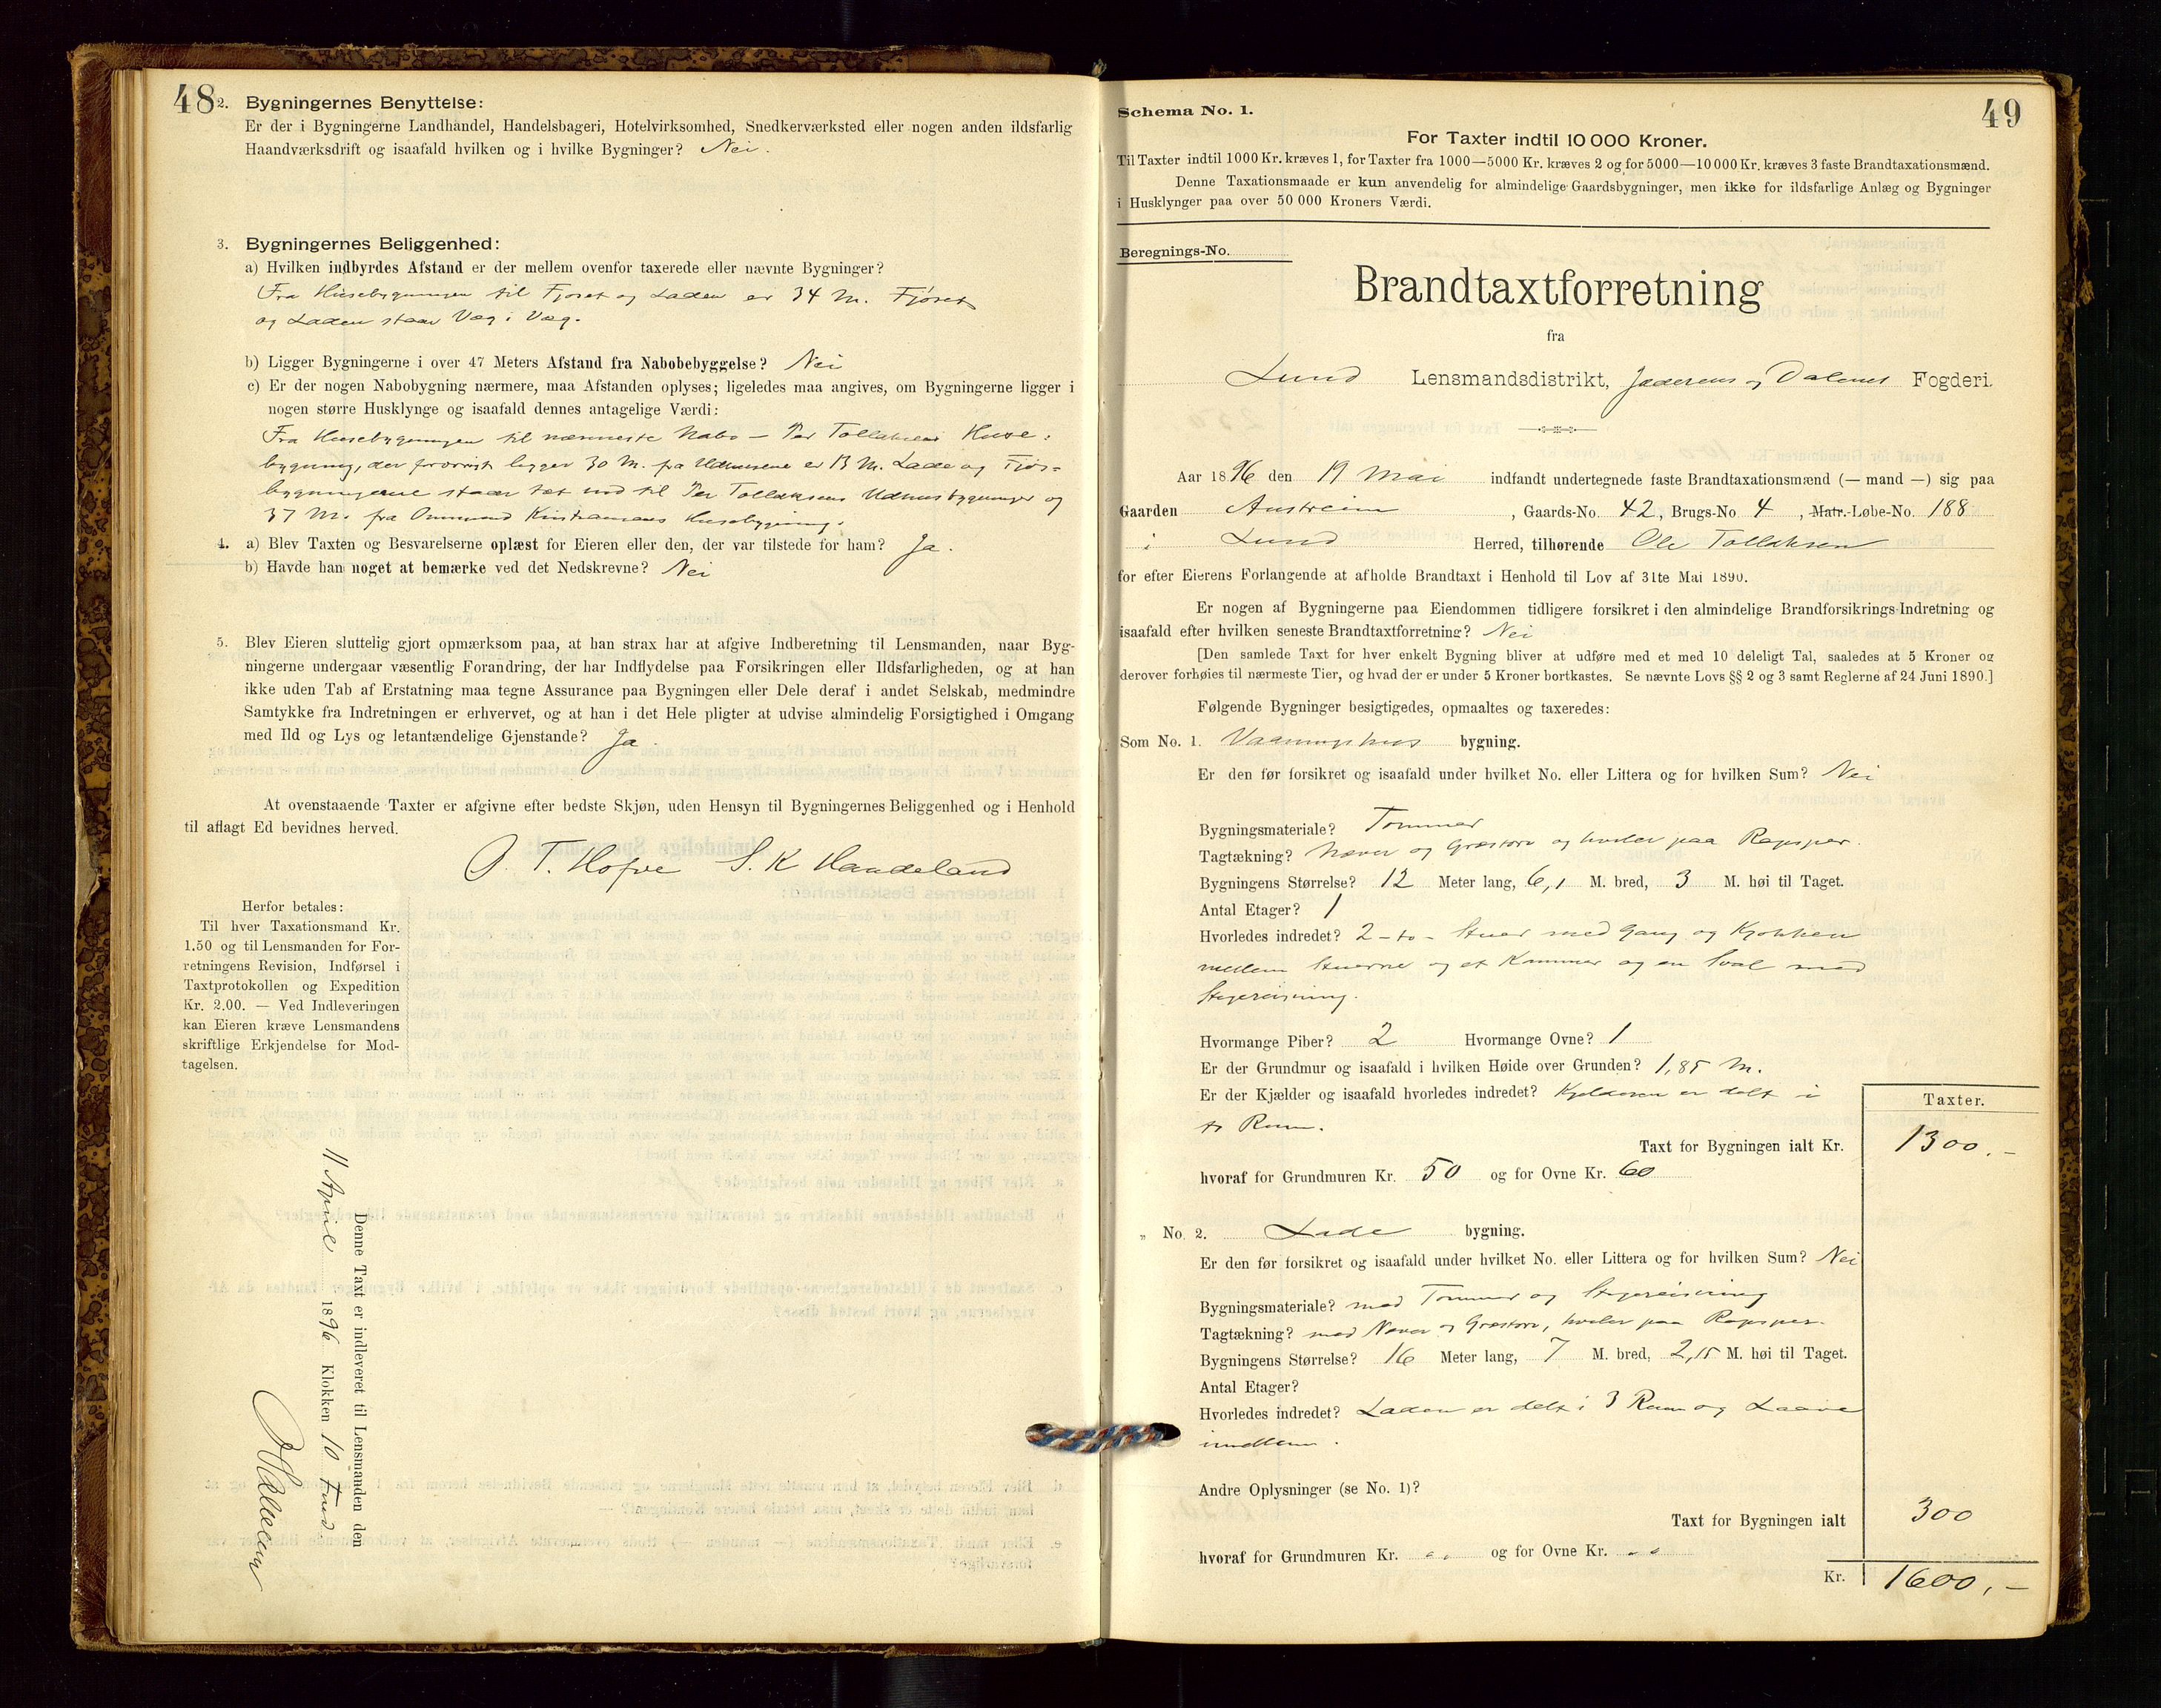 48
2. Bygningernes Benyttelse:
Er der i Bygningerne Landhandel, Handelsbageri, Hotelvirksomhed, Snedkerværksted eller nogen anden ildsfarlig
Haandværksdrift og isaafald hvilken og i hvilke Bygninger? Nei.
3. Bygningernes Beliggenhed:
a) Hvilken indbyrdes Afstand er der mellem ovenfor taxerede eller nævnte Bygninger?
Fra Husebygningen til Fjøset og Laden er 34 M. Fjøset
og Laden staar Væg i Væg.
b) Ligger Bygningerne i over 47 Meters Afstand fra Nabobebyggelse? Nei
c) Er der nogen Nabobygning nærmere, maa Afstanden oplyses; ligeledes maa angives, om Bygningerne ligger i
nogen større Husklynge og isaafald dennes antagelige Værdi:
Fra Husebygningen til nærmeste Nabo — Per Tollaksens Huse-
bygning, der forøvrigt ligger 30 M. fra Udhusene er 13 M. Lade og Fjøs-
bygningerne staar tæt ind til Per Tollaksens Udhusbygninger og
37 M. fra Ommund Husebygning.
4. a) Blev Taxten og Besvarelserne oplæst for Eieren eller den, der var tilstede for ham? Ja.
b) Havde han noget at bemærke ved det Nedskrevne? Nei
5. Blev Eieren sluttelig gjort opmærksom paa, at han strax har at afgive Indberetning til Lensmanden, naar Byg-
ningerne undergaar væsentlig Forandring, der har Indflydelse paa Forsikringen eller Ildsfarligheden, og at han
ikke uden Tab af Erstatning maa tegne Assurance paa Bygningen eller Dele deraf i andet Selskab, medmindre
Samtykke fra Indretningen er erhvervet, og at han i det Hele pligter at udvise almindelig Forsigtighed i Omgang
med Ild og Lys og letantændelige Gjenstande? Ja
At ovenstaaende Taxter er afgivne efter bedste Skjøn, uden Hensyn til Bygningernes Beliggenhed og i Henhold
til aflagt Ed bevidnes herved.
O. T. Hofve S. K Handeland
Herfor betales:
Til hver Taxationsmand Kr.
1.50 og til Lensmanden for For-
retningens Revision, Indførsel i
Taxtprotokollen og Expedition
Kr. 2.00. — Ved Indleveringen
kan Eieren kræve Lensmandens
skriftlige Erkjendelse for Mod-
tagelsen.
Denne Taxt er indleveret til Lensmanden den
11 April 1896 Klokken 10 Form.
49
Schema No. 1.
For Taxter indtil 10 000 Kroner.
Til Taxter indtil 1000 Kr. kræves 1, for Taxter fra 1000—5000 Kr. kræves 2 og for 5000—10 000 Kr. kræves 3 faste Brandtaxationsmænd.
Denne Taxationsmaade er kun anvendelig for almindelige Gaardsbygninger, men ikke for ildsfarlige Anlæg og Bygninger
i Husklynger paa over 50 000 Kroners Værdi.
Beregnings-No.
Brandtaxtforretning
fra
Lund Lensmandsdistrikt, Jæderens og Dalenes Fogderi.
Aar 1896 den 19 Mai indfandt undertegnede faste Brandtaxationsmænd (— mand —) sig paa
Gaarden Austreim, Gaards-No. 42, Brugs-No 4, Matr.-Løbe-No. 188
i Lund Herred, tilhørende Ole Tollaksen
for efter Eierens Forlangende at afholde Brandtaxt i Henhold til Lov af 31te Mai 1890.
Er nogen af Bygningerne paa Eiendommen tidligere forsikret i den almindelige Brandforsikrings-Indretning og
isaafald efter hvilken seneste Brandtaxtforretning? Nei
[Den samlede Taxt for hver enkelt Bygning bliver at udføre med et med 10 deleligt Tal, saaledes at 5 Kroner og
derover forhøies til nærmeste Tier, og hvad der er under 5 Kroner bortkastes. Se nævnte Lovs §§ 2 og 3 samt Reglerne af 24 Juni 1890.]
Følgende Bygninger besigtigedes, opmaaltes og taxeredes:
Som No. 1. Vaaningshus bygning.
Er den før forsikret og isaafald under hvilket No. eller Littera og for hvilken Sum? Nei
Bygningsmateriale? Tømmer
Tagtækning? Næver og Græstorv og hviler paa Rafsper.
Bygningens Størrelse? 12 Meter lang, 6,1 M. bred, 3 M. høi til Taget.
Antal Etager? 1
Hvorledes indredet? 2 - to - Stuer med Gang og Kjøkken
mellem Stuerne og et Kammer og en Sval med
Stagereisning.
Hvormange Piber? 2 Hvormange Ovne? 1
Er der Grundmur og isaafald i hvilken Høide over Grunden? 1,85 M.
Er der Kjælder og isaafald hvorledes indredet? Kjelderen er delt i
to Rum.
Taxter.
Taxt for Bygningen ialt Kr. 1300.-
hvoraf for Grundmuren Kr. 50 og for Ovne Kr. 60
„ No. 2. Lade bygning.
Er den før forsikret og isaafald under hvilket No. eller Littera og for hvilken Sum? Nei
Bygningsmateriale? med Tømmer og Stagereisning
Tagtækning? med Næver og Græstorv, hviler paa Rafsper.
Bygningens Størrelse? 16 Meter lang, 7 M. bred, 2,15 M. høi til Taget.
Antal Etager?
Hvorledes indredet? Laden er delt i 3 Rum og Laave
imellem.
Andre Oplysninger (se No. 1)?
Taxt for Bygningen ialt 300
hvoraf for Grundmuren Kr. „ og for Ovne Kr. „
Kr. 1600,-